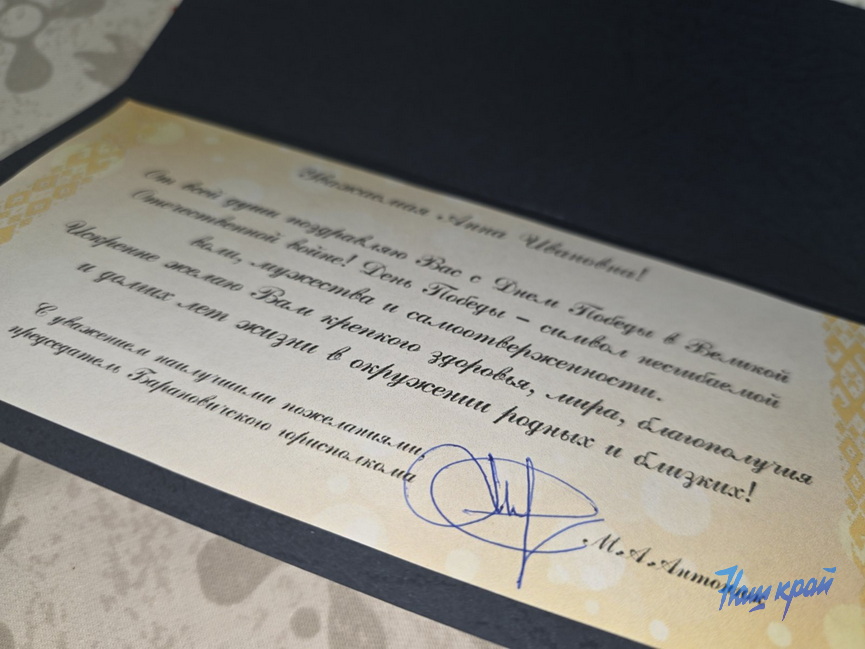 Уважаемая Анна Ивановна!
От всей души поздравляю Вас с Днем Победы в Великой
Отечественной войне! День Победы – символ несгибаемой
воли, мужества и самоотверженности.
Искренне желаю Вам крепкого здоровья, мира, благополучия
и долгих лет жизни в окружении родных и близких!
С уважением наилучшими пожеланиями,
председатель Барановичского юрисполкома
М.А.
Наш край